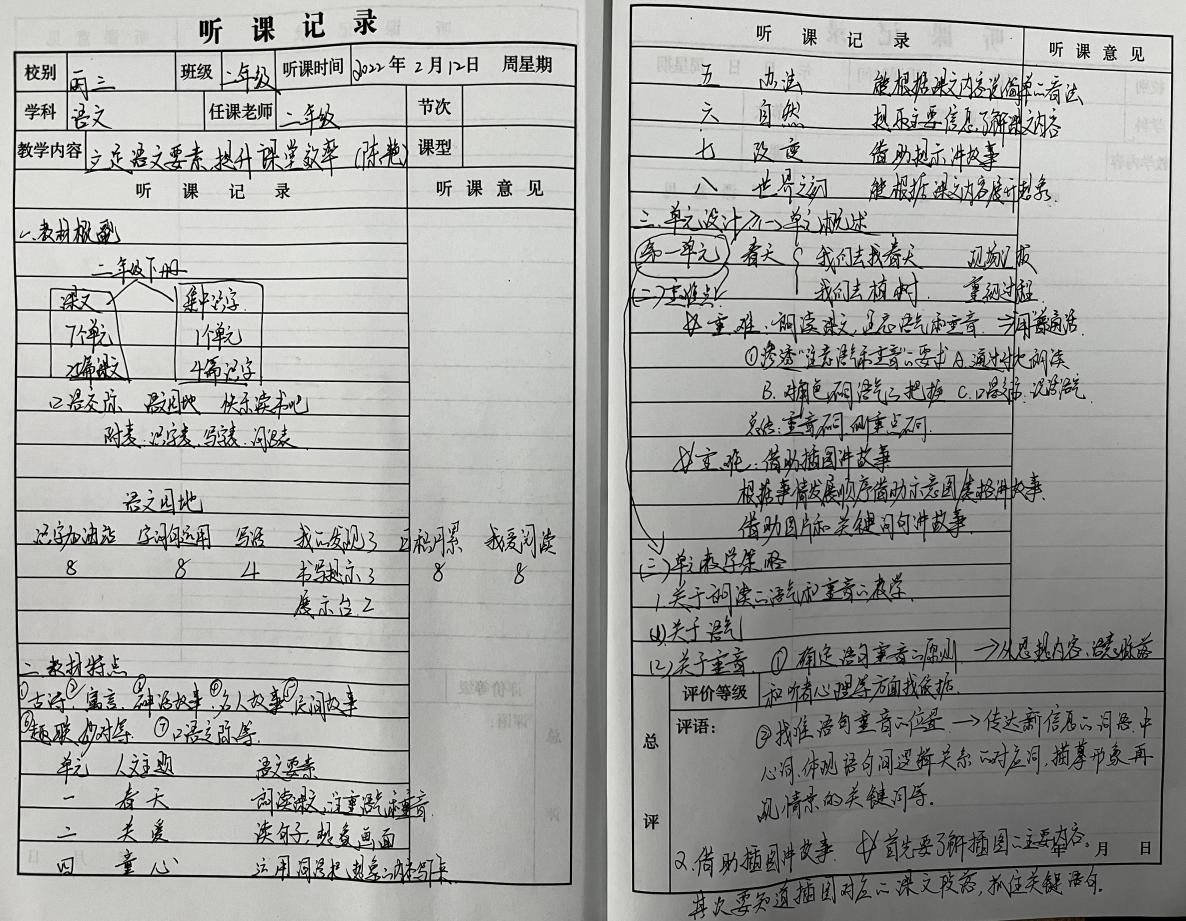 听课记录
校别 丙三 班级 二年级 听课时间 2022年2月12日 周星期
学科 语文 任课老师 二年级 节次
教学内容 立足语文要素,提升课堂效率 (陈艳) 课型
听课记录 听课意见
一.教材概配
二年级下册
课文 集中识字
7个单元 1个单元
21篇课文 4篇识字
口语交际 语文园地 快乐读书吧
附表:识字表.写字表.词语表
语文园地
识字加油站 字词句运用 写话 我的发现3 日积月累 我爱阅读
8 8 4 书写提示3 8 8
展示台2
二.教材特点
①古诗②寓言.③神话故事④名人故事⑤民间故事
⑥趣联妙对等.⑦口语交际等.
单元 人文主题 语文要素
一 春天 朗读课文,注重语气和重音.
二 关爱 读句子,想象画面
四 童心 运用词语把想象的内容写下来
听课记录 听课意见
五 办法 能根据课文内容说简单的看法
六 自然 提取主要信息,了解课文内容
七 改变 借助提示讲故事
八 世界之初 能根据课文内容展开想象.
三.单元设计 (一)单元概述
第一单元 春天 我们去找春天 现场汇报
(二)重难点 我们去植树. 重视过程
重难:朗读课文,注意语气和重音.→用普通话.
①渗透"注意语气和重音"的要求 A.通过对比朗读
B.对角色不同语气的把握 C.口语交际.说话语气
总结:重音不同侧重点不同.
重难:借助插图讲故事
根据事情发展顺序借助示意图集好讲故事.
借助图片和关键词句讲故事.
(三)单元教学策略
1.关于朗读的语气和重音的教学.
(1)关于语气
(2)关于重音 ①确定语句重音的原则 →从思想内容、语意脉络
评价等级 和听者心理等方面找依据.
总评 评语: ②找准语句重音的位置 →传达新信息的词语.中
心词.体现语句间逻辑关系的对应词,描摹形象再
现情景的关键词等.
2.借助插图讲故事. 首先要了解插图的主要内容.
年 月 日
其次要知道插图对应的课文段落,抓住关键语句.